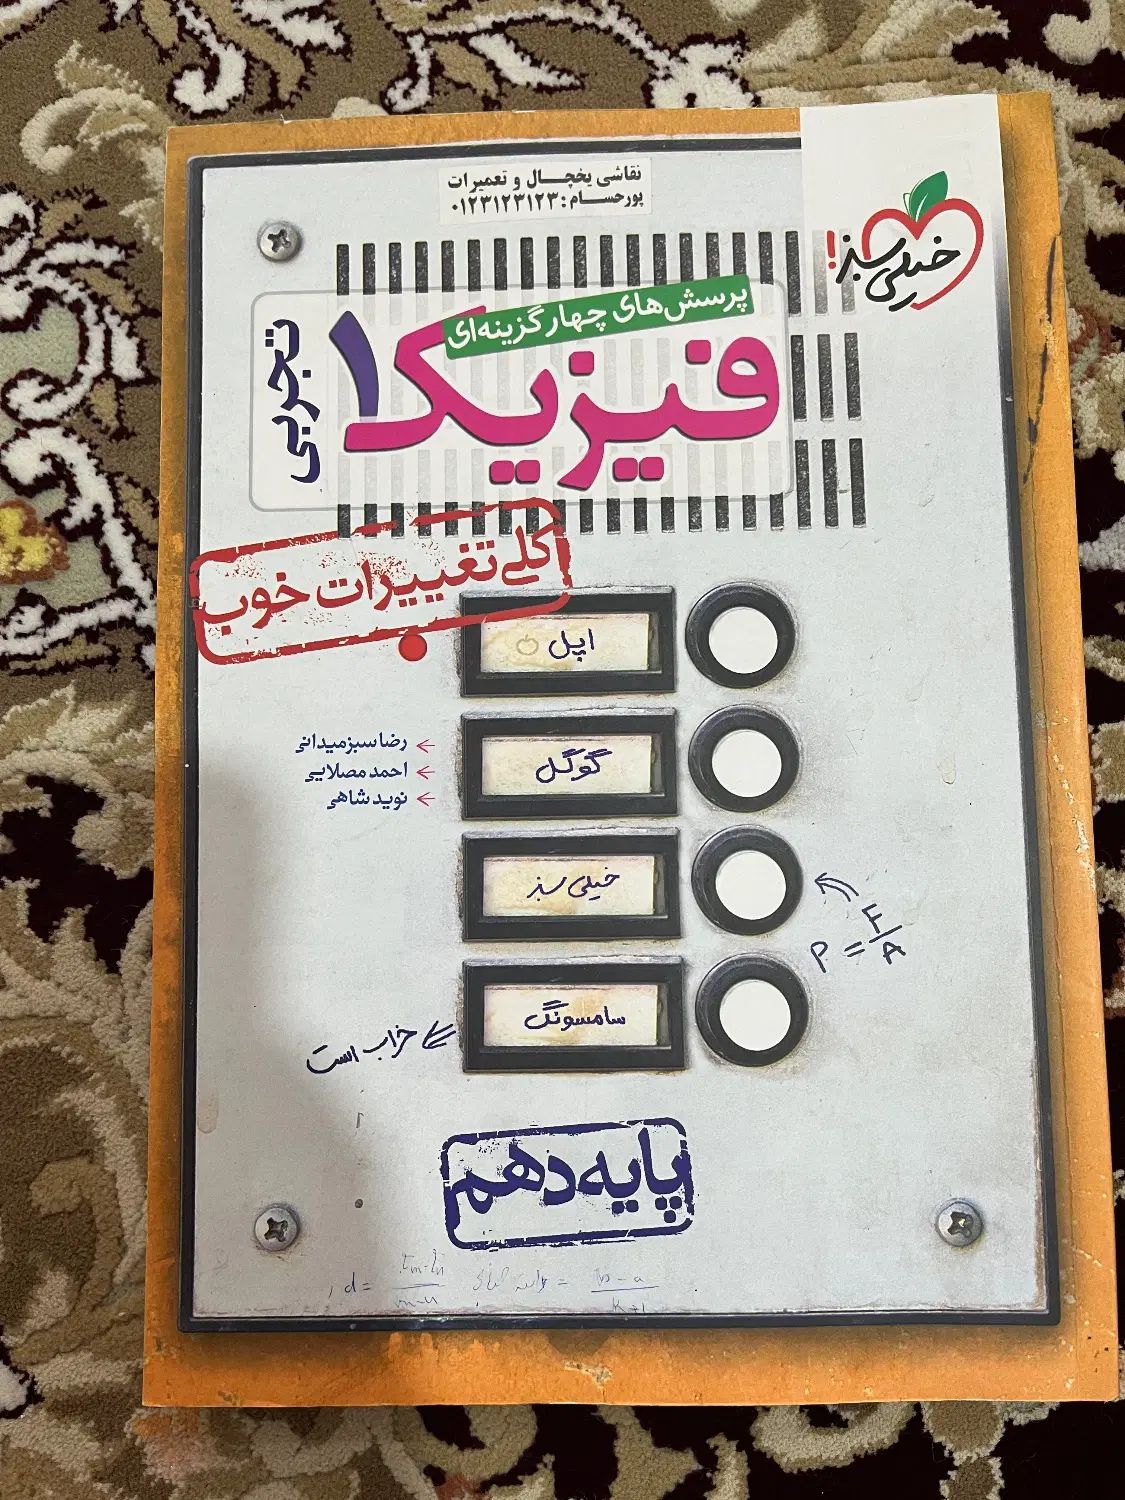 نقاشی یخچال و تعمیرات
پورحسام: ۰۱۲۳۱۲۳۱۲۳
خیلی سبز!
پرسش‌های چهارگزینه‌ای
فیزیک ۱
تجربی
کلی تغییرات خوب
اپل
رضا سبزمیدانی
احمد مصلایی
نوید شاهی
گوگل
خیلی سبز
P = F/A
سامسونگ
خراب است
پایه دهم
d =